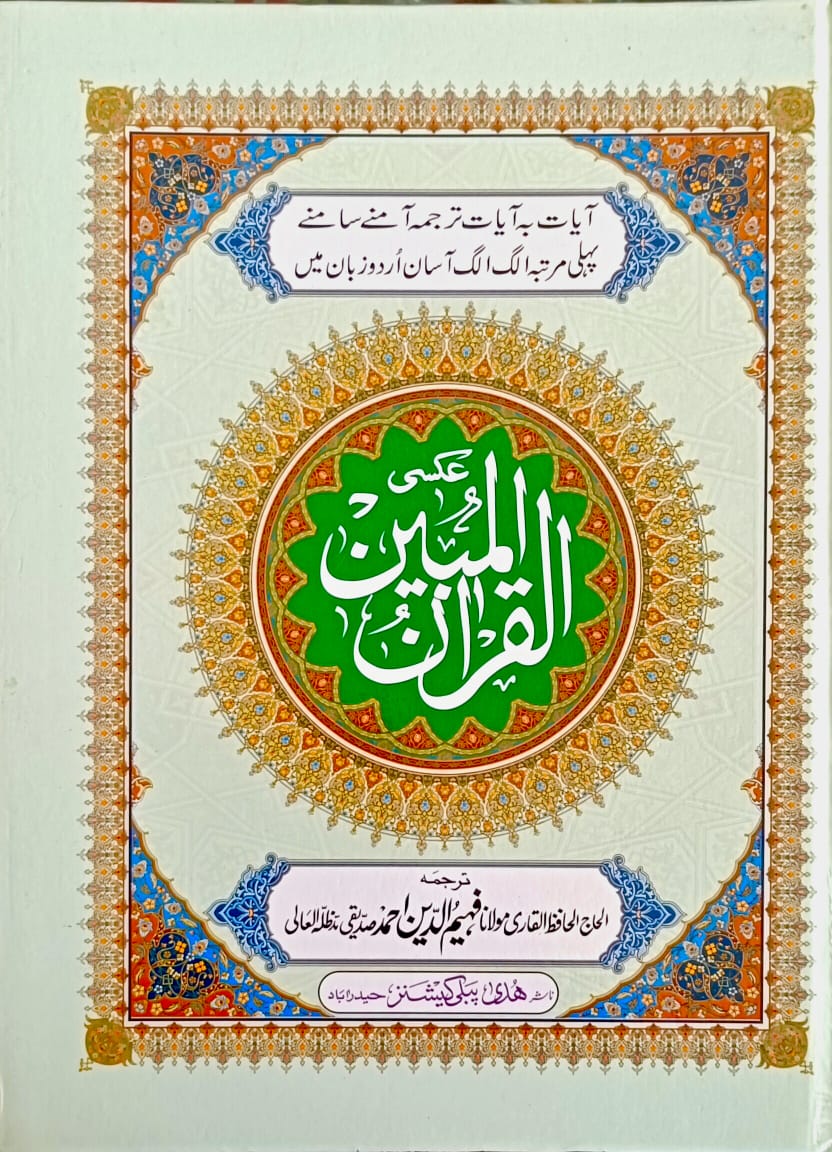 آیات بہ آیات ترجمہ آمنے سامنے
پہلی مرتبہ الگ الگ آسان اُردو زبان میں
عکسی
القرآن المُبین
ترجمہ
الحاج الحافظ القاری مولانا فہیم الدّین احمد صدّیقی مدّظلہ العالی
ناشر ھُدیٰ پبلی کیشنز حیدرآباد